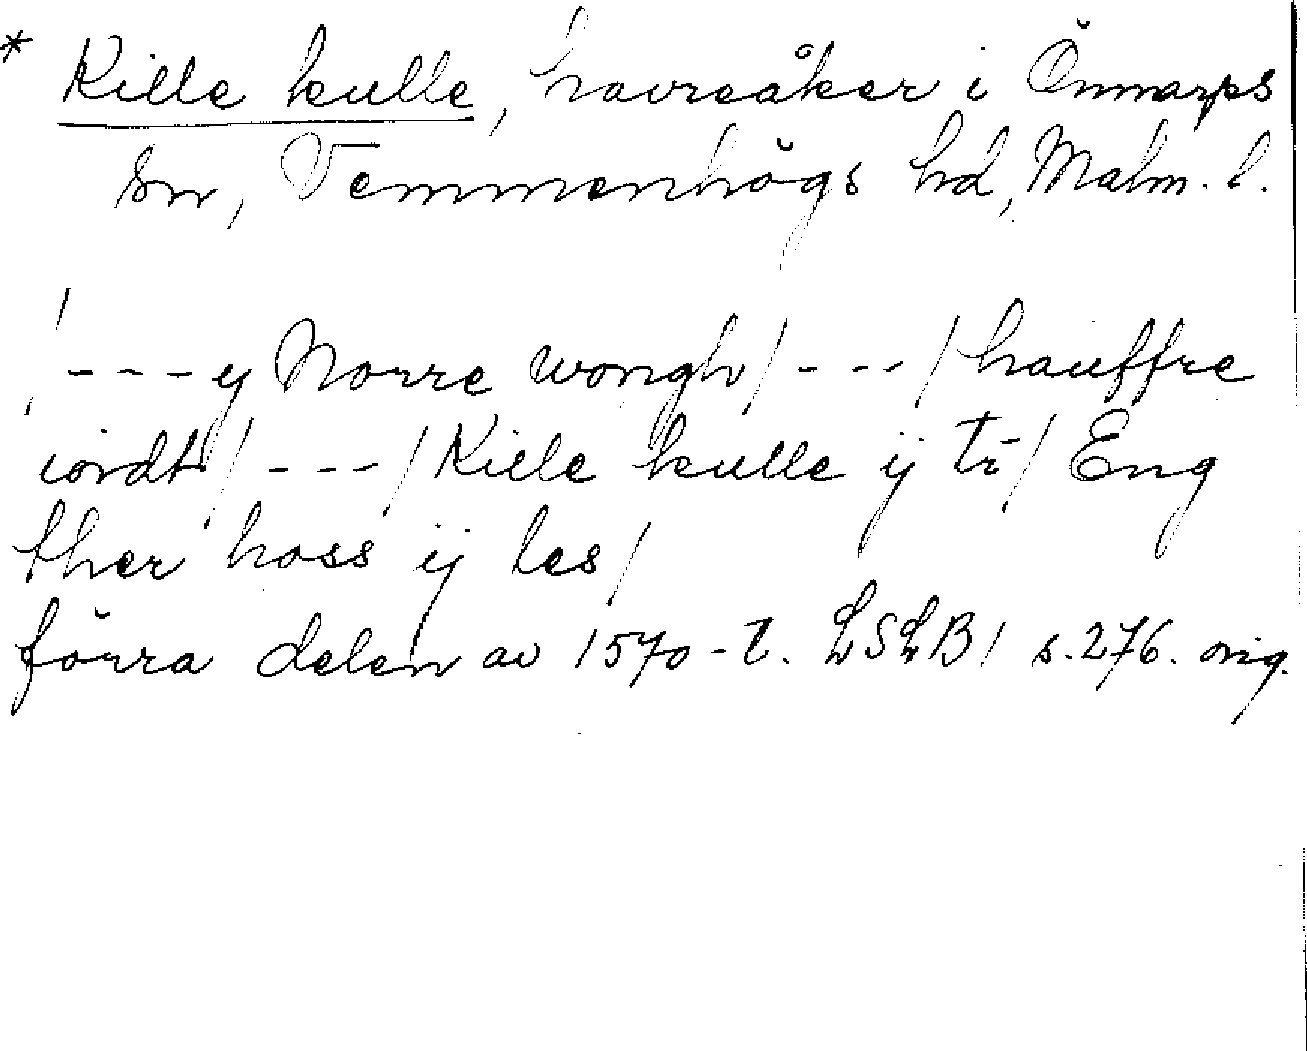 * Kille kulle, havreåker i Önnarps
sn, Vemmenhögs hd, Malm. l.
/ - - - y Norre wongh / - - - / hauffre
iordt / - - - / Kille kulle ij tr̄ / Eng
ther hoss ij les /
förra delen av 1570-t. LSLB 1 s. 276. orig.